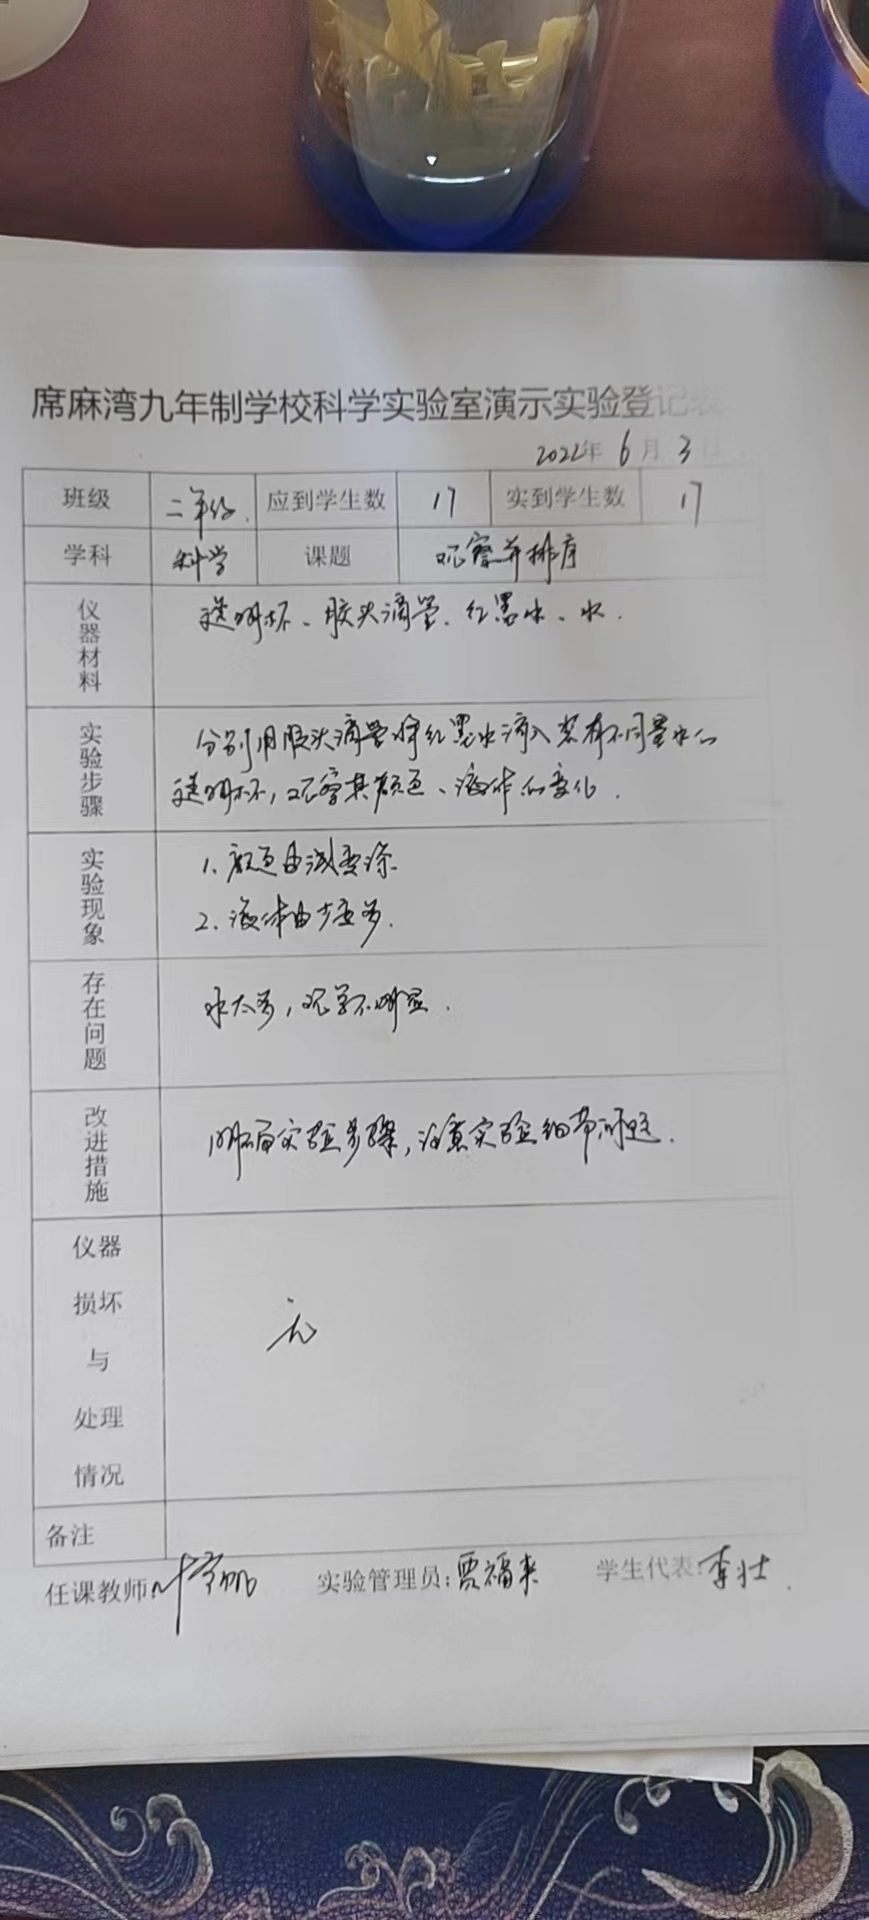 席麻湾九年制学校科学实验室演示实验登记表
2022年 6月 3日
班级 二年级 应到学生数 17 实到学生数 17
学科 科学 课题 观察并排序
仪器材料 透明杯、胶头滴管、红墨水、水.
实验步骤 分别用胶头滴管将红墨水滴入装有不同量水的
透明杯,观察其颜色、液体的变化.
实验现象 1.颜色由浅变深
2.液体由少变多.
存在问题 水太多,现象不明显.
改进措施 明确实验步骤,注意实验细节问题.
仪器
损坏
与
处理
情况
无
备注
任课教师: 实验管理员:贾福来 学生代表:李壮